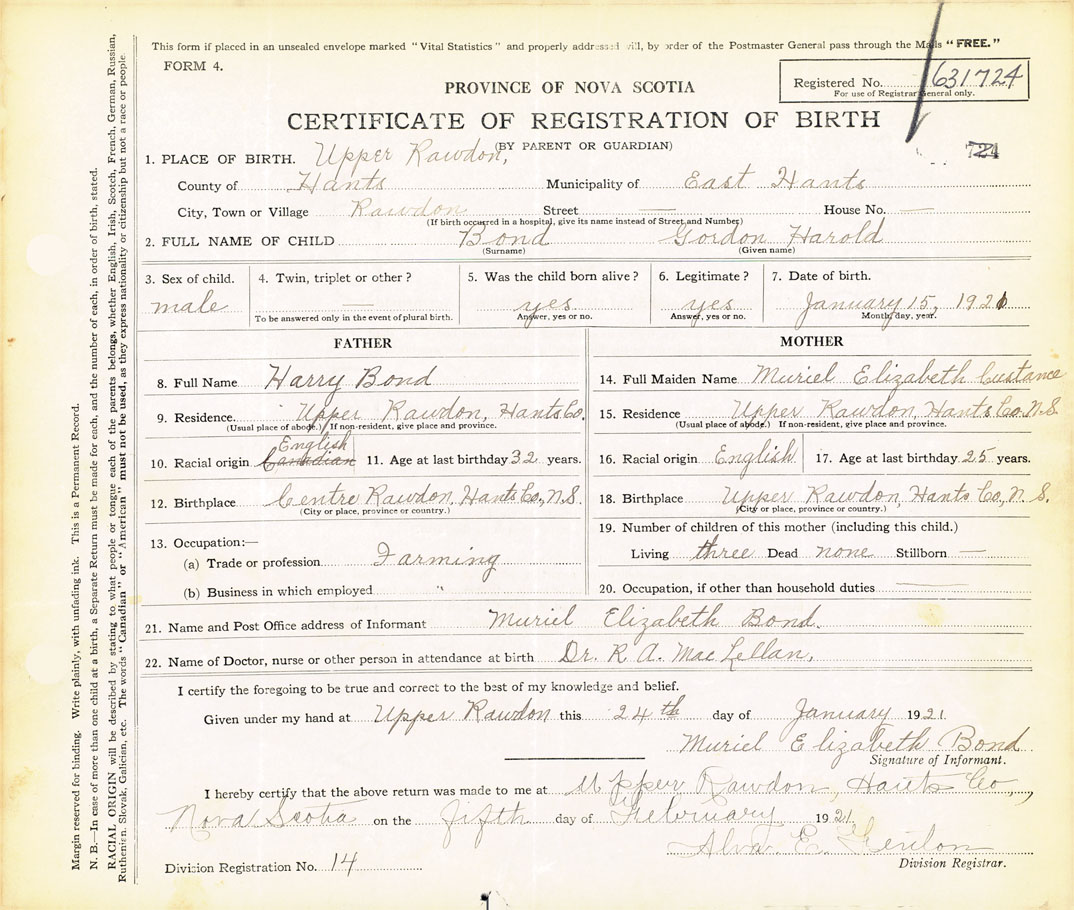 This form if placed in an unsealed envelope marked "Vital Statistics" and properly addressed will, by order of the Postmaster General pass through the Mails "FREE."
FORM 4.
Registered No. 631724
For use of Registrar General only.
PROVINCE OF NOVA SCOTIA
CERTIFICATE OF REGISTRATION OF BIRTH
(BY PARENT OR GUARDIAN)
724
1. PLACE OF BIRTH. Upper Rawdon,
County of Hants Municipality of East Hants
City, Town or Village Rawdon Street — House No. —
(If birth occurred in a hospital, give its name instead of Street and Number)
2. FULL NAME OF CHILD Bond Gordon Harold
(Surname) (Given name)
3. Sex of child. 4. Twin, triplet or other? 5. Was the child born alive? 6. Legitimate? 7. Date of birth.
male — yes yes January 15, 1921
To be answered only in the event of plural birth. Answer, yes or no. Answer, yes or no. Month, day, year.
FATHER
8. Full Name Harry Bond
9. Residence. Upper Rawdon, Hants Co.
(Usual place of abode.) If non-resident, give place and province.
English
10. Racial origin Canadian 11. Age at last birthday 32 years.
12. Birthplace Centre Rawdon, Hants Co., N.S.
(City or place, province or country.)
13. Occupation:—
(a) Trade or profession Farming
(b) Business in which employed "
MOTHER
14. Full Maiden Name Muriel Elizabeth Custance
15. Residence Upper Rawdon, Hants Co. N.S.
(Usual place of abode.) If non-resident, give place and province.
16. Racial origin English 17. Age at last birthday 25 years.
18. Birthplace Upper Rawdon, Hants Co, N. S.
(City or place, province or country.)
19. Number of children of this mother (including this child.)
Living three Dead none Stillborn —
20. Occupation, if other than household duties —
21. Name and Post Office address of Informant Muriel Elizabeth Bond.
22. Name of Doctor, nurse or other person in attendance at birth Dr. R. A. MacLellan,
I certify the foregoing to be true and correct to the best of my knowledge and belief.
Given under my hand at Upper Rawdon this 24th day of January 1921.
Muriel Elizabeth Bond
Signature of Informant.
I hereby certify that the above return was made to me at Upper Rawdon, Hants Co.,
Nova Scotia on the fifth day of February 1921
Alva E.
Division Registrar.
Division Registration No. 14
Margin reserved for binding. Write plainly, with unfading ink. This is a Permanent Record.
N. B.—In case of more than one child at a birth, a Separate Return must be made for each, and the number of each, in order of birth, stated.
RACIAL ORIGIN will be described by stating to what people or tongue each of the parents belongs, whether English, Irish, Scotch, French, German, Russian,
Ruthenian, Slovak, Galician, etc. The words "Canadian" or "American" must not be used, as they express nationality or citizenship but not a race or people